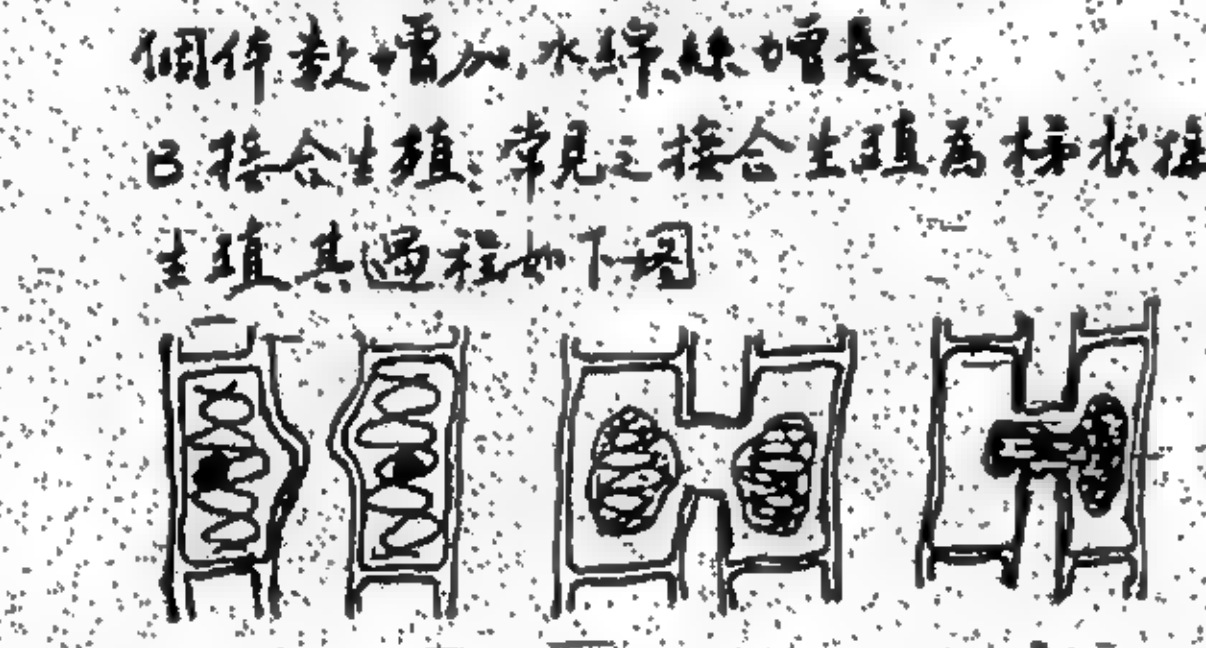 個体数增加,水綿絲增長
B 接合生殖:常見之接合生殖為梯状接
生殖其過程如下図